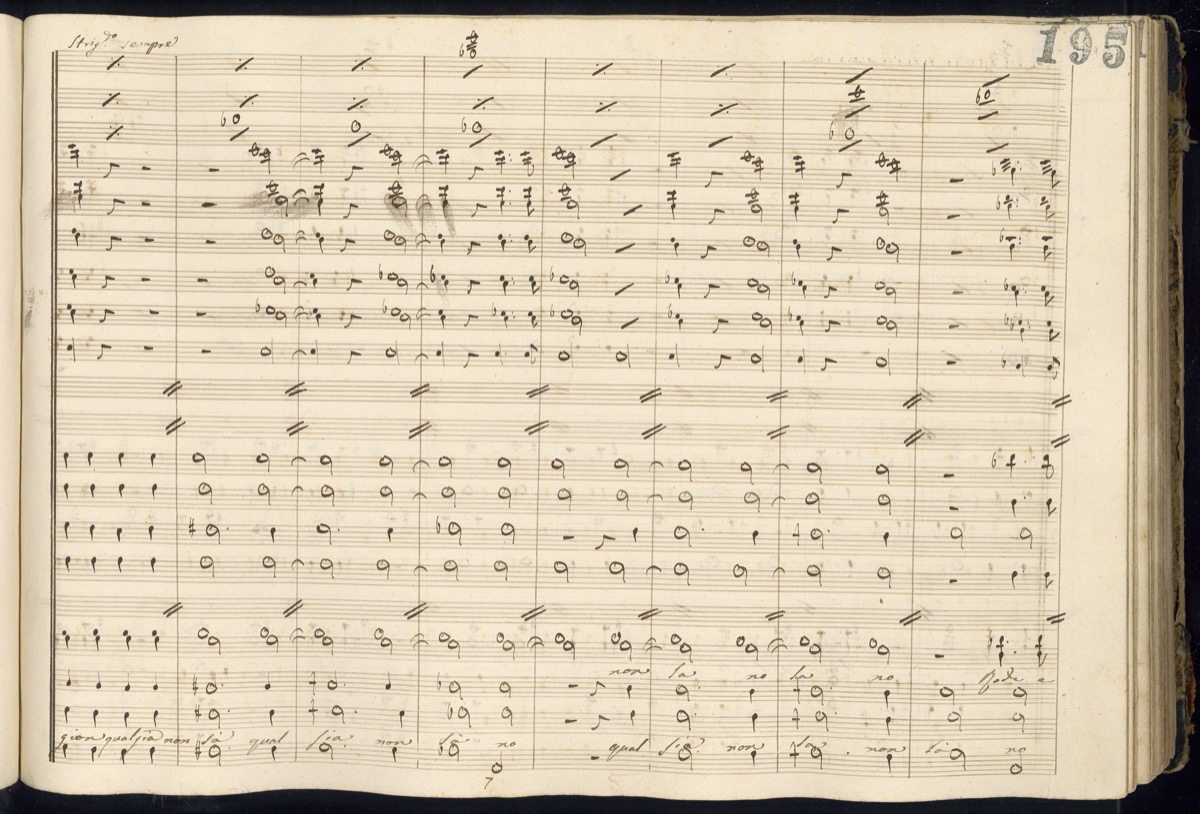 Strig.do sempre
195
non sa no sa no fode e
gion qual sia non sà qual sia non sà no qual sia non sa non sà no
7